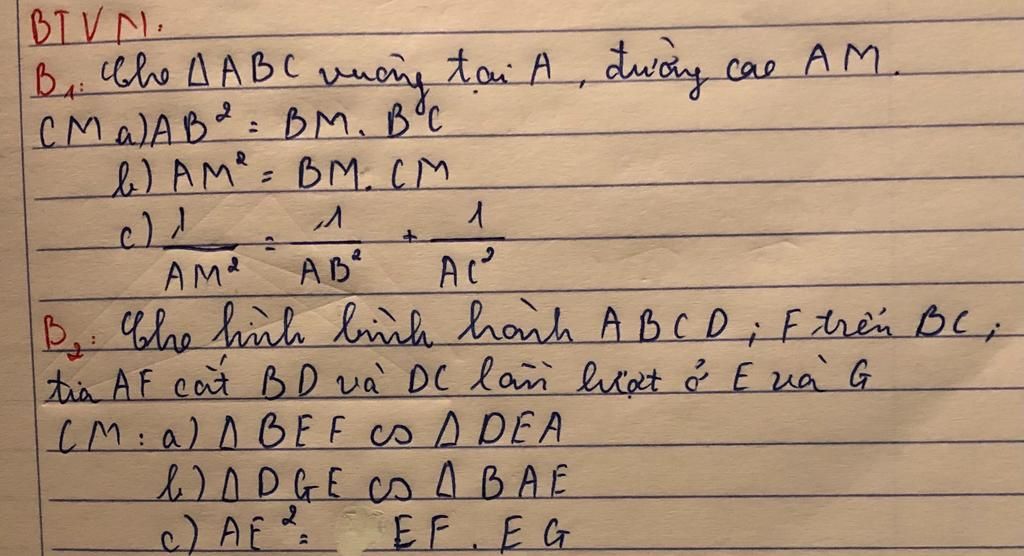 BTVN.
B1: Cho ΔABC vuông tại A, đường cao AM.
CM a) AB² = BM. BC
b) AM² = BM. CM
c) 1/AM² = 1/AB² + 1/AC²
B2: Cho hình bình hành ABCD; F trên BC;
tia AF cắt BD và DC lần lượt ở E và G
CM: a) Δ BEF ∽ Δ DEA
b) Δ DGE ∽ Δ BAE
c) AE² = EF. EG